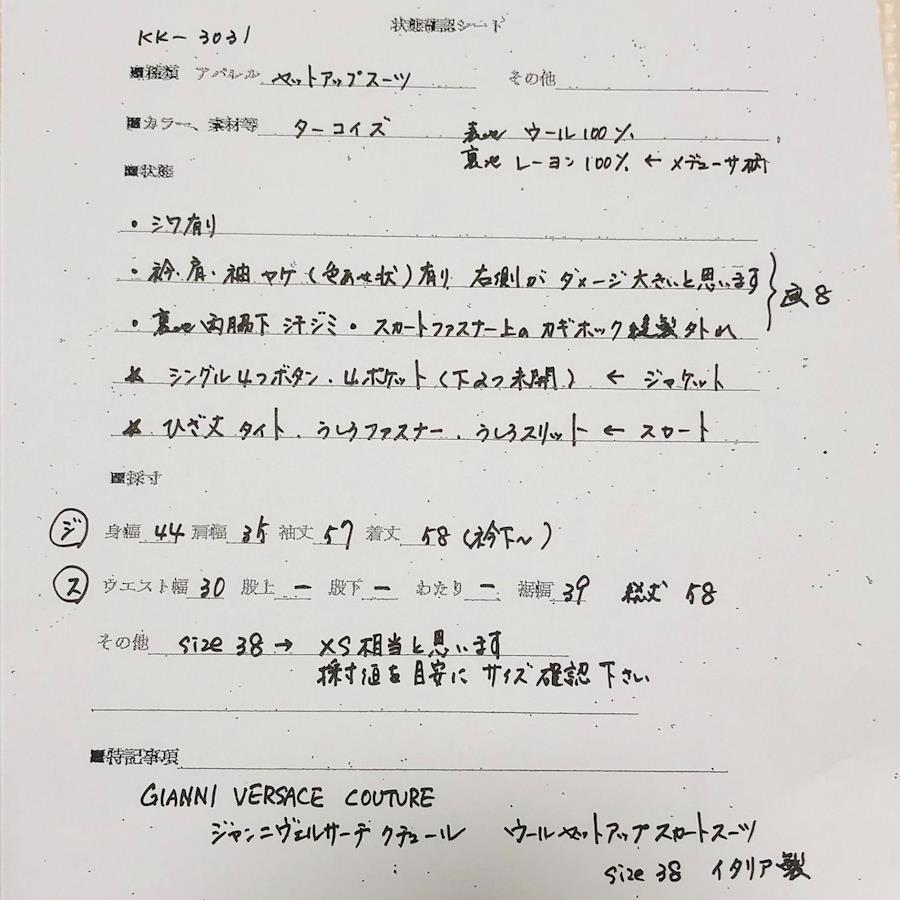 状態確認シート
KK-3031
■種類 アパレル セットアップスーツ その他
■カラー、素材等 ターコイズ 表地 ウール100%
裏地 レーヨン100% ← メデューサ柄
■状態
・シワ有り
・衿・肩・袖ヤケ(色あせ状)有り 右側がダメージ大きいと思います
・裏地両脇下汗ジミ・スカートファスナー上のカギホック縫製外れ
画8
* シングル4つボタン・4ポケット(下2つ未開) ← ジャケット
* ひざ丈タイト、うしろファスナー、うしろスリット ← スカート
■採寸
ジ 身幅 44 肩幅 35 袖丈 57 着丈 58(衿下~)
ス ウエスト幅 30 股上 ー 股下 ー わたり ー 裾幅 39 総丈 58
その他 size 38 → XS相当と思います
採寸値を目安にサイズ確認下さい
■特記事項
GIANNI VERSACE COUTURE
ジャンニヴェルサーチ クチュール ウールセットアップスカートスーツ
size 38 イタリア製